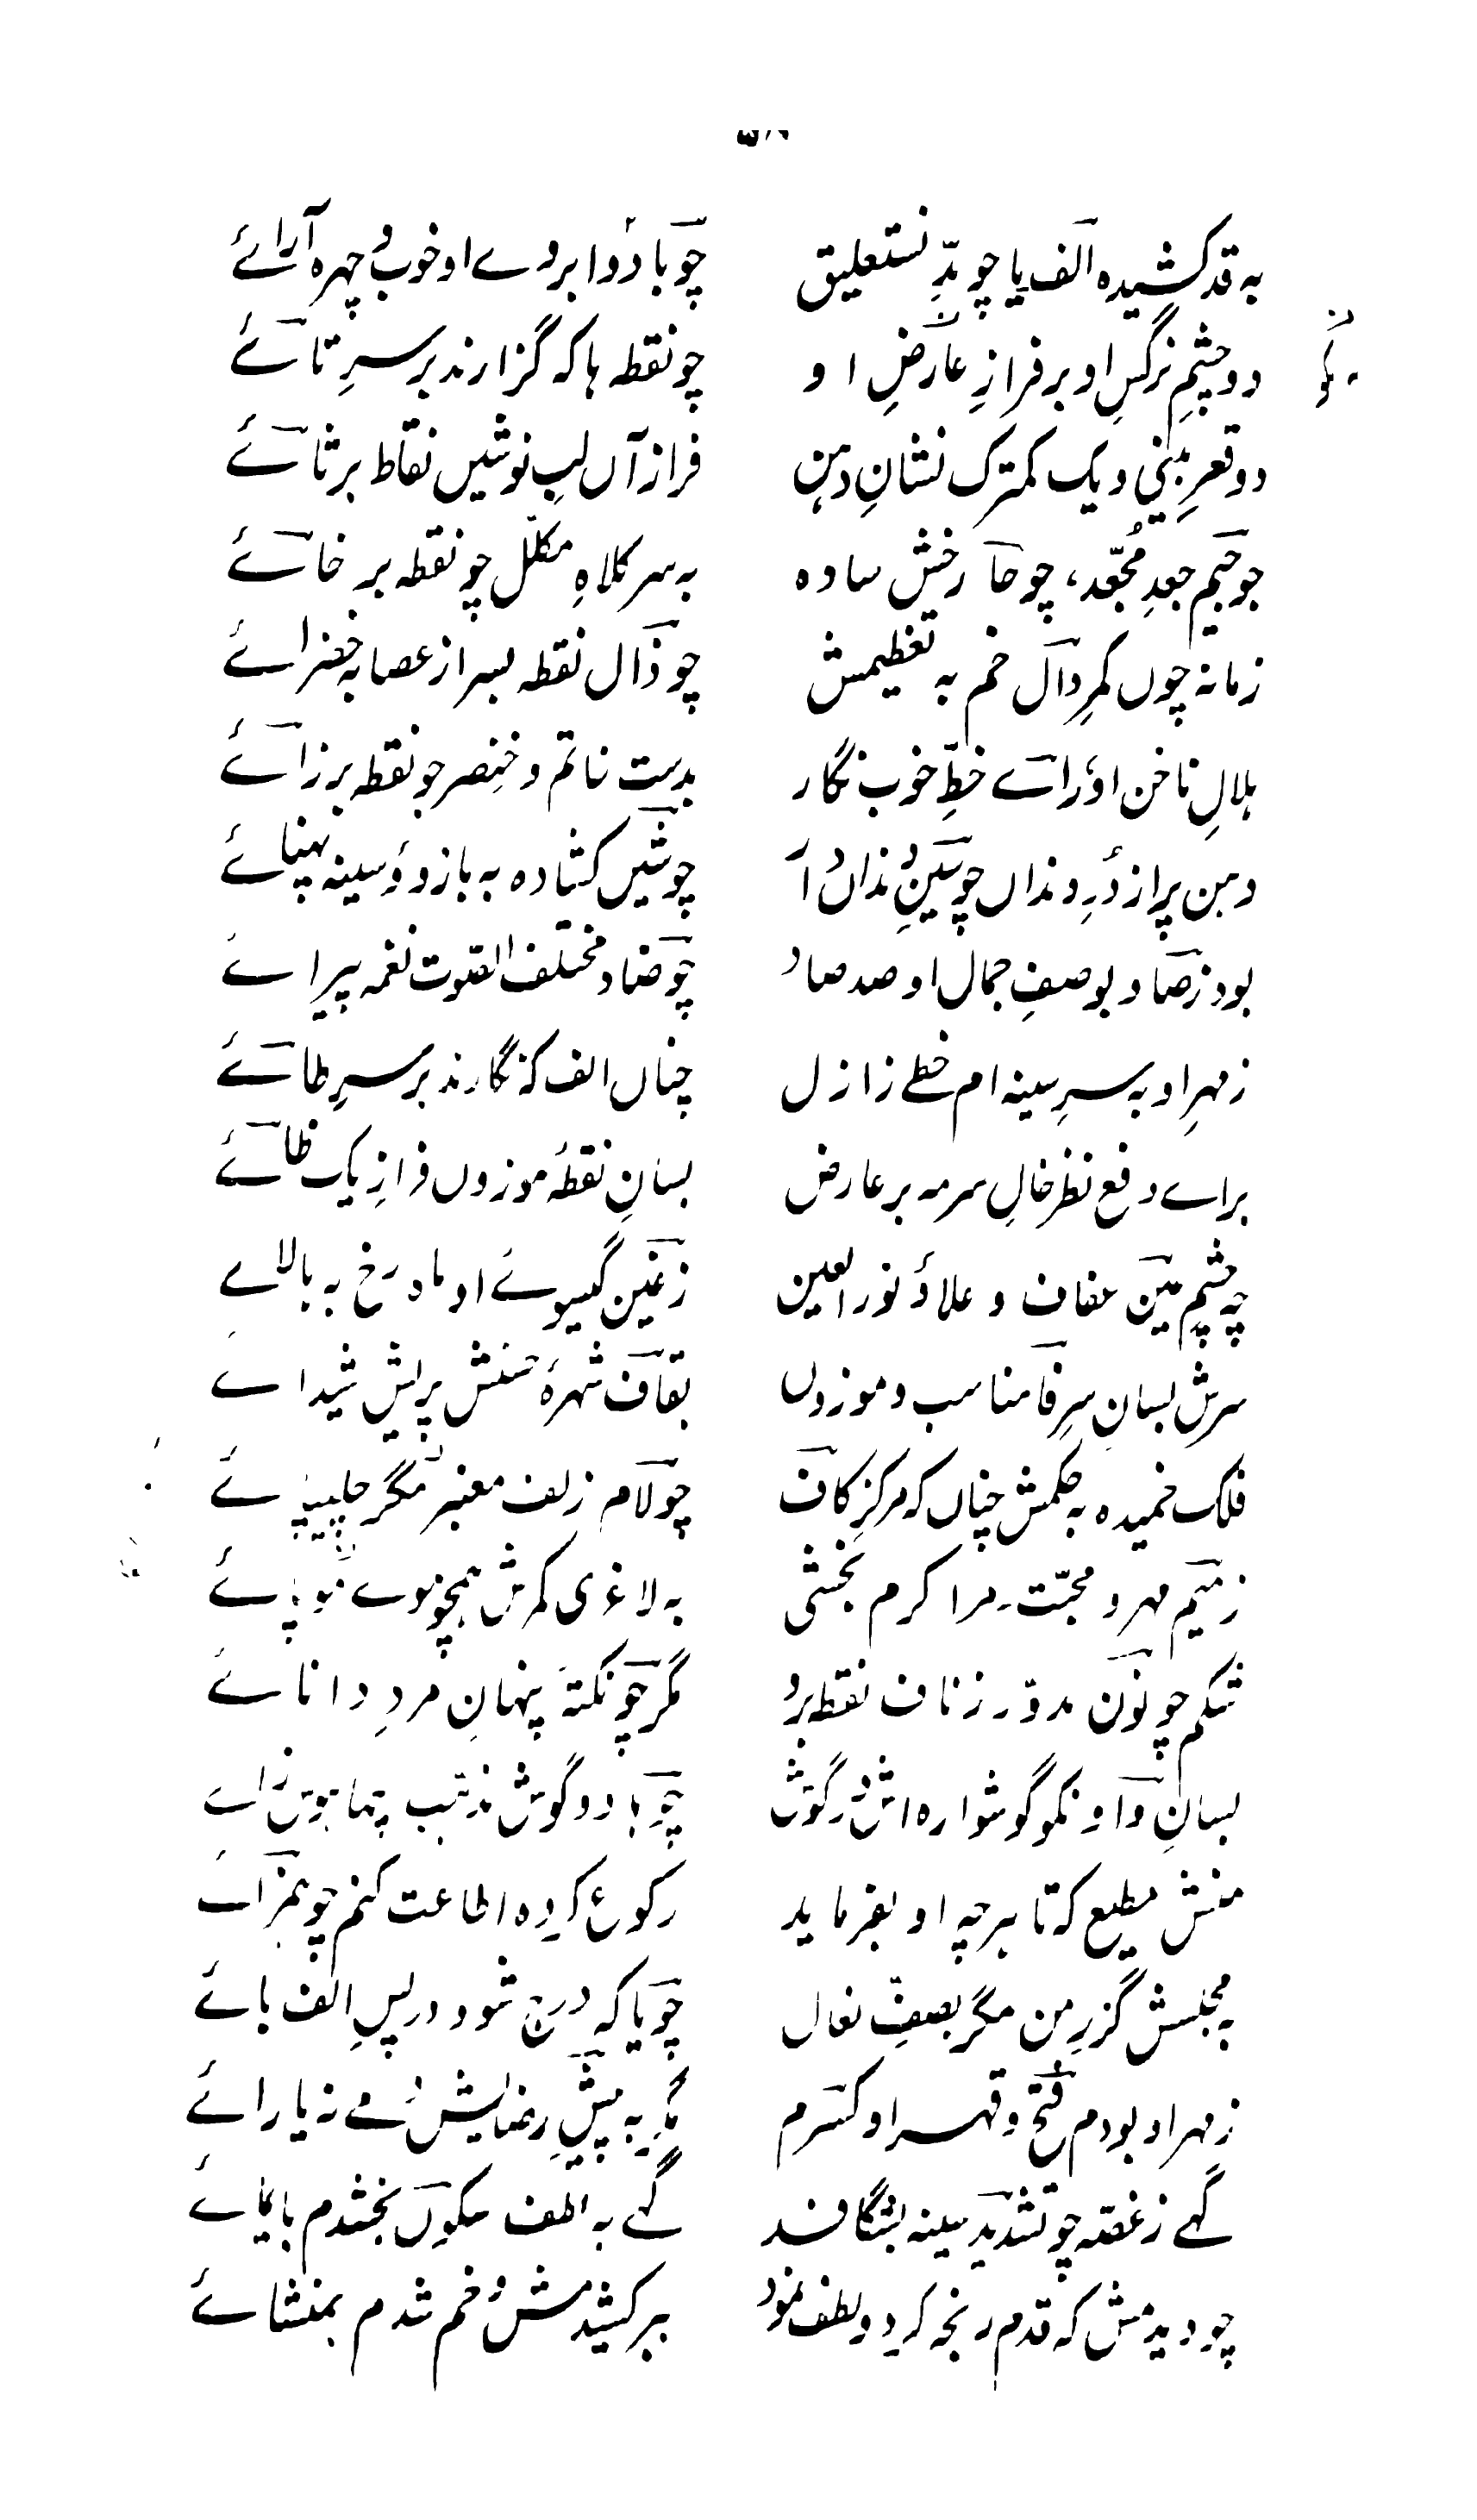 به قد کشیده الف یا چو مدِّ نستعلیق چو با دو ابروے او خوب چہره آرائے
دو چشمِ نرگسِ او بر فرازِ عارضِ او چو نقطه ہا که گزارند بر سرِ تائے
دو قعرِ بینی و یک کمترک نشانِ دہن فراز آں لبِ نوشیں نقاط بر ثائے
چو جیم جعدِ مجعّد، چو حا رخش ساده به سر کلاهِ مکلّل چو نقطه بر خائے
زمانه چوں کمرِ دال خم به تعظیمش چو ذال نقطه بسر از عصابه خضرائے
ہلالِ ناخن او رائے خطِّ خوب نگار بدست خاتم و خنصر چو نقطه بر زائے
دہن پر از دُرِ دنداں چو سین دندان چو شیں کشاده به بازو و سینه پہنائے
بود ز صاد بوصفِ جمال او صد صاد چو ضاد مختلف الصّوت نغمه پیرائے
ز مہرِ او به سرِ سینه ام خطے ز ازل چناں الف که نگارند بر سرِ طائے
براے دفعِ نظر خالِ سرمه بر عارض بسانِ نقطهٔ موزوں فرازِ یک ظائے
چه چشم عین عفاف و علاؤ نور العین ز غین گیسوے او ماه رخ به بالائے
سرش بسانِ سرِ فا مناسب و موزوں بقاف شہرهٔ حسنش پریش شیدائے
فلک خمیده به حکمش چناں که مرکزِ کاف چو لام زلف معنبر مگر چلیپائے
ز میم مہر و محبّت مرا کرم بخشی به لاغری کمرش ہمچو موے
شکم چو نون مدوّر ز ناف نقطه برو مگر چو نکتهٔ پنہانِ مردِ دانائے
بسانِ واو نکو گوشواره اش در گوش چو ہا دو گوش مذہّب
منش مطیع که تا ہرچه او بفرماید رکوع کرده اطاعت کنم چو ہمزائے
به مجلسش گزرِ من مگر بصفِّ نعال چو یا که درج شود در پسِ الف بائے
ز مہر او بودم فتح و قہر او کسرم به پیشِ رضایش نه یارائے
گہے ز غصّه چو تشدید سینه بشگافد گہے به لطف سکوں بخشدم بایمائے
چو دیدمش که قدم رنجه کرد و لطف نمود ببر کشیدمش و خم شدم بمنشائے